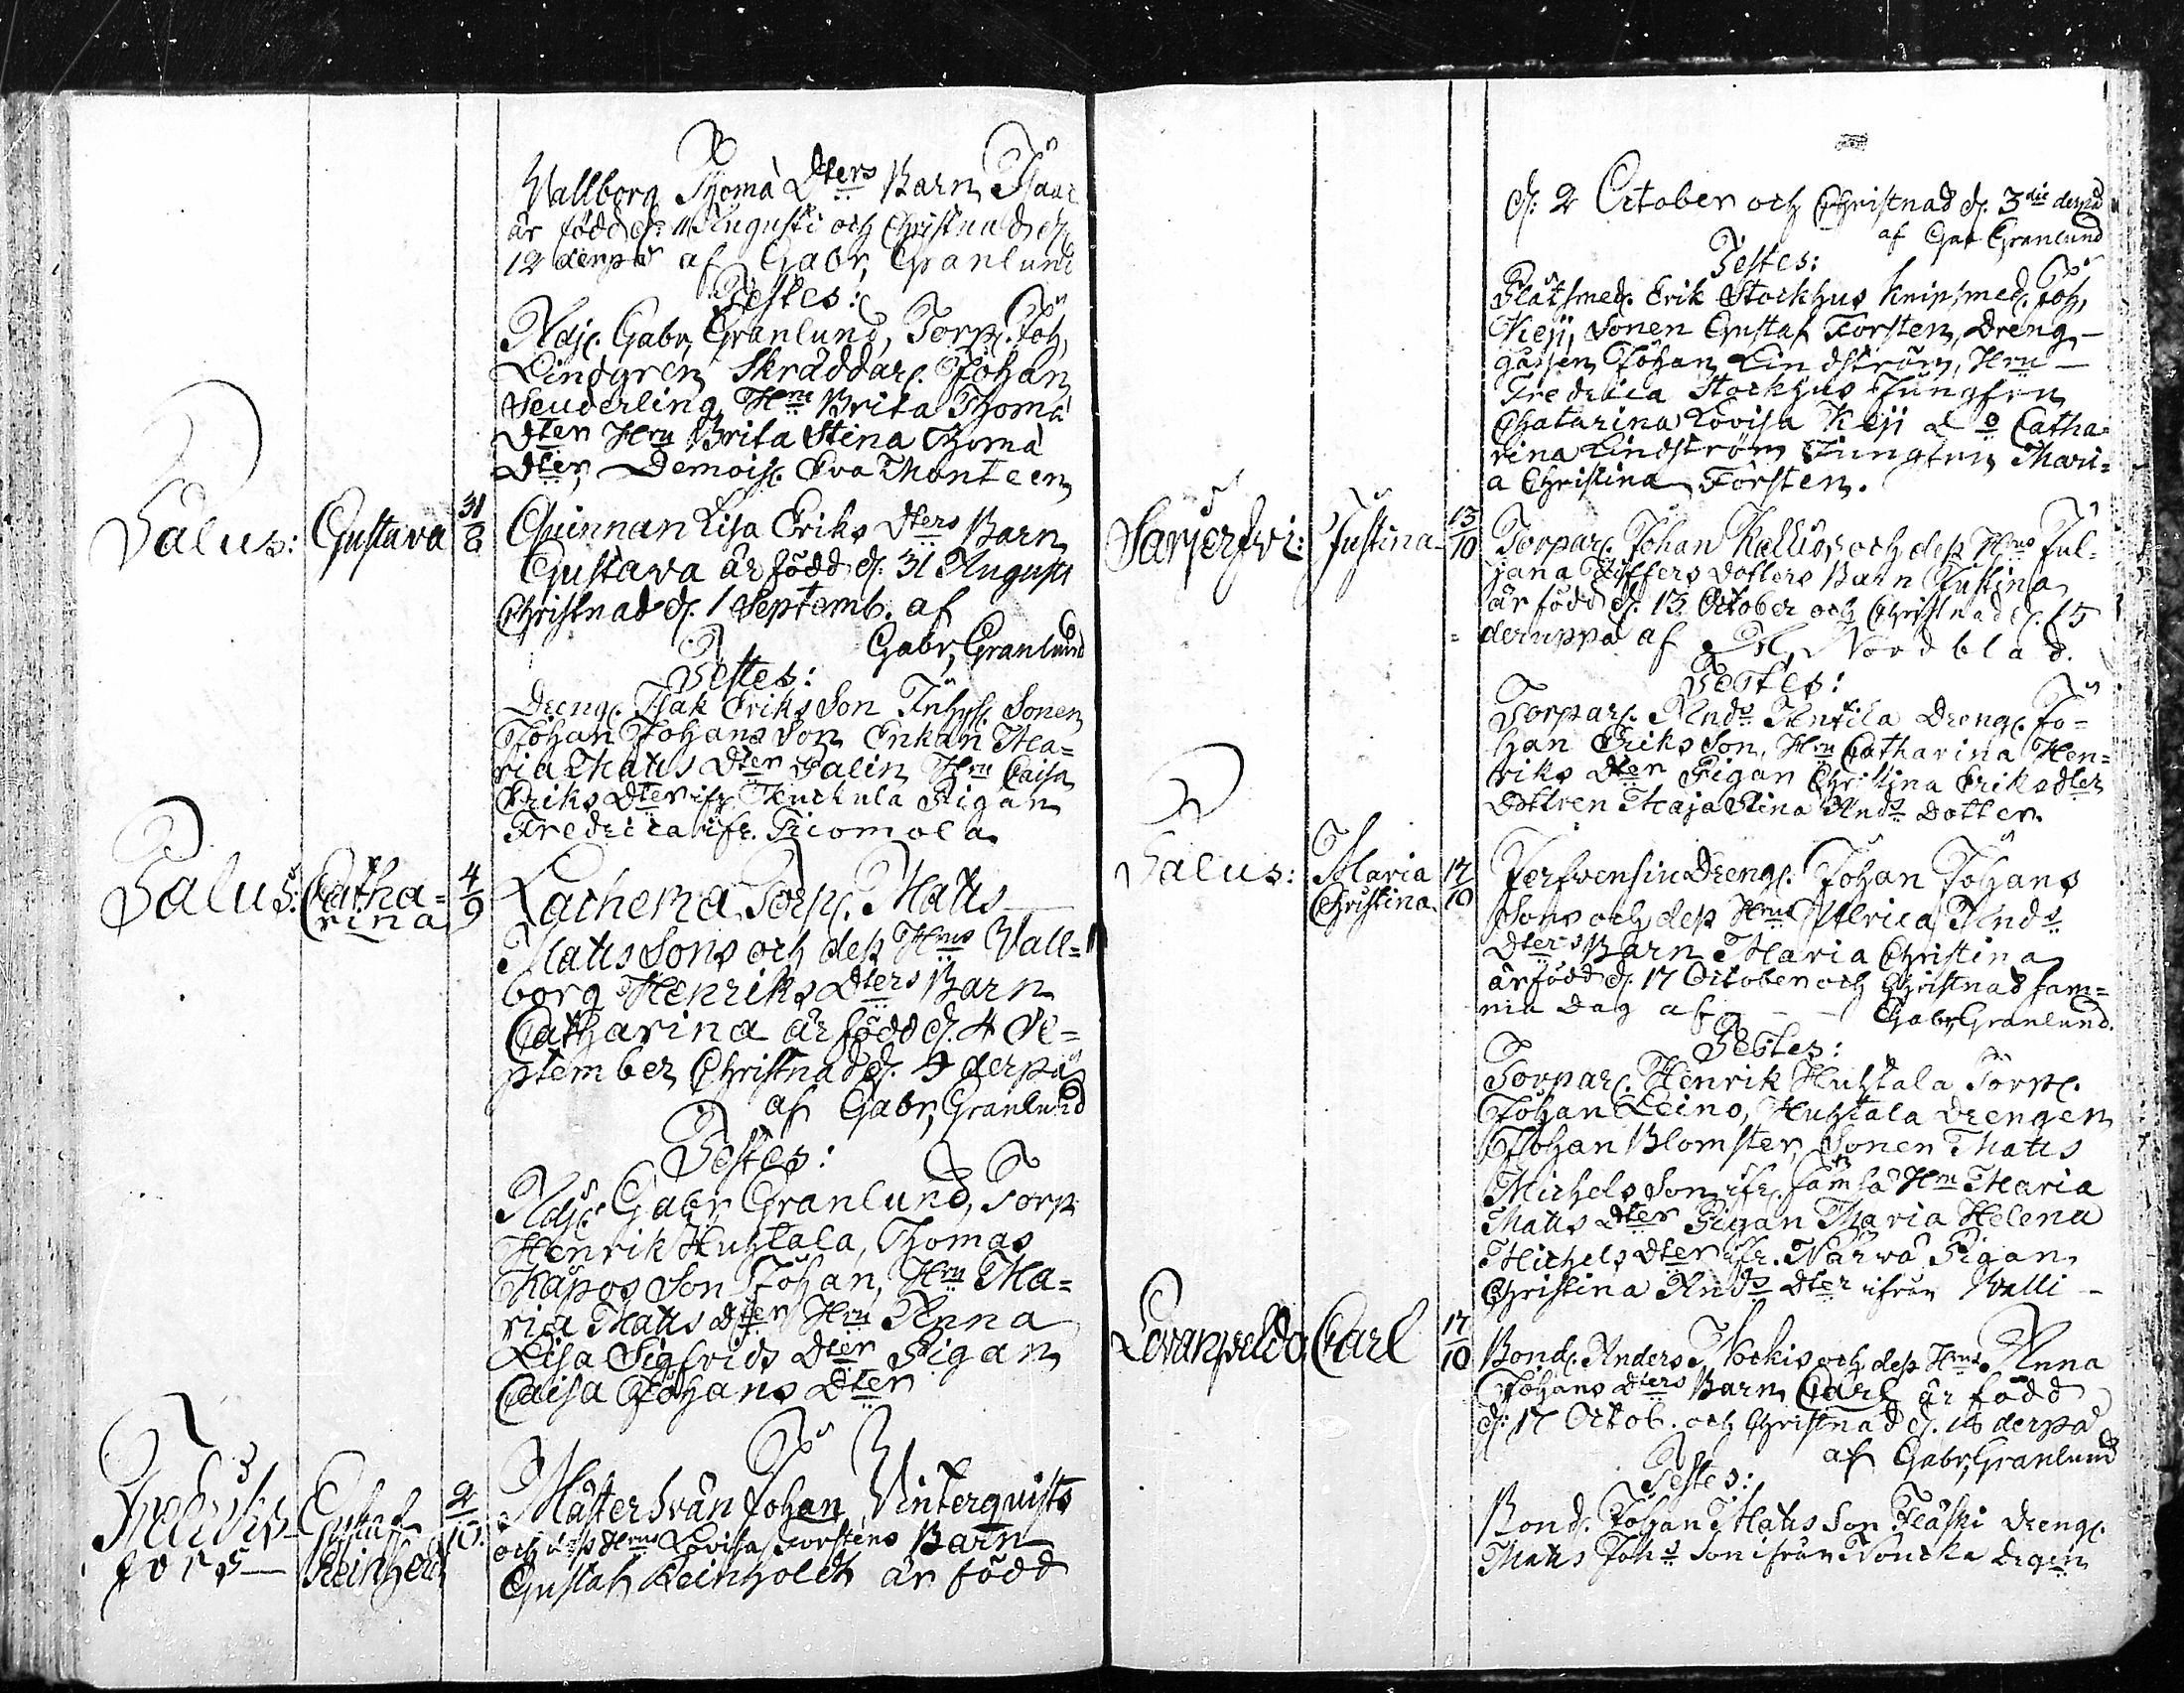 Wallborg Thomæ Dters Barn Isaac
är född d. 11 Augusti och Christnad d.
12 derpå af Gabr. Granlund
Testes:
Adj. Gabr. Granlund, Torp. Joh.
Lindgren Skräddar. Johan
Seuderling Hru Brita Thomæ
Dter Hru Brita Stina Thomæ
Dter, Demois. Eva Monteen
Salus: Gustava 31/8 Qvinnan Lisa Eriks Dters Barn
Gustava är född d. 31 August
Christnad d. 1 Septemb. af
Gabr. Granlund
Testes:
Dreng. Isak Eriks Son Inhys. Sonen
Johan Johans Son Enkan Ma=
ria Matts Dter Salin Hru Caisa
Eriks Dter ifr. Pigan
Fredrica ifr.
Salus: Catha=
rina 4/9 Lachema Torp. Matts
Matts Sons och dess Hrus Vall=
borg Henriks Dters Barn
Catharina är född d. 4 Se=
ptember Christnad d. derpå
af Gabr. Granlund
Testes:
Adj. Gabr Granlund, Torp
Henrik Huhtala, Thomas
Kapos Son Johan, Hru Ma=
ria Matts Dter Hru Anna
Lisa Sigfrids Dter Pigan
Caisa Johans Dter
Fredriks-
fors Gustaf
Reinhold 2/10. Mästersvän Johan Vinterquists
och dess Hrus Lovisa Forstens Barn
Gustaf Reinholdt är född
d: 2 October och Christnad d. 3die derpå
af Gab Granlund
Testes:
Erik Stockhus Knipsmed. Joh,
Keji, Sonen Gustaf Forsten, Dreng-
gassen Johan Lindström, Hru
Fredrica Stockhus Jungfrun
Chatarina Lovisa Keji Catha=
rina Lindström Jungfrun Mari=
a Christina Forsten.
Justina 13/10 Torpar. Johan Kallios och dess Hrus Jul=
jana dotters Barn Justina
är född d. 13 October och Christnad d. 15
deruppå af Nordblad.
Testes:
Torpar. Ands Anttila Dreng. Jo=
han Eriks Son, Hru Catharina Hen=
riks Dter Pigan Christina Eriks dter
Dottren Maja Stina Ands Dotter.
Salus: Maria
Christina 17/10 Dreng. Johan Johans
Sons och dess Hrus Ulrica Ands
Dters Barn Maria Christina
är född d. 17 October och Christnad sam=
ma Dag af - - Gabr. Granlund.
Testes:
Torpar. Henrik Huhtala Torp.
Johan Leino, Huhtala Drengen
Johan Blomster, Sonen Matts
Michels Son ifr. Hru Maria
Matts Dter Pigan Maria Helena
Michels Dter ifr. Närvä Pigan
Christina Ands Dter ifrån Valli -
Levanpeldo Carl 17/10 Bond. Anders Nockis och dess Hrus Anna
Johans Dters Barn Carl är född
d: 17 Octob. och Christnad d. 18 derpå
af Gabr. Granlund
Testes:
Bond. Johan Matts Son Fläski Dreng.
Matts Johs Son ifrån